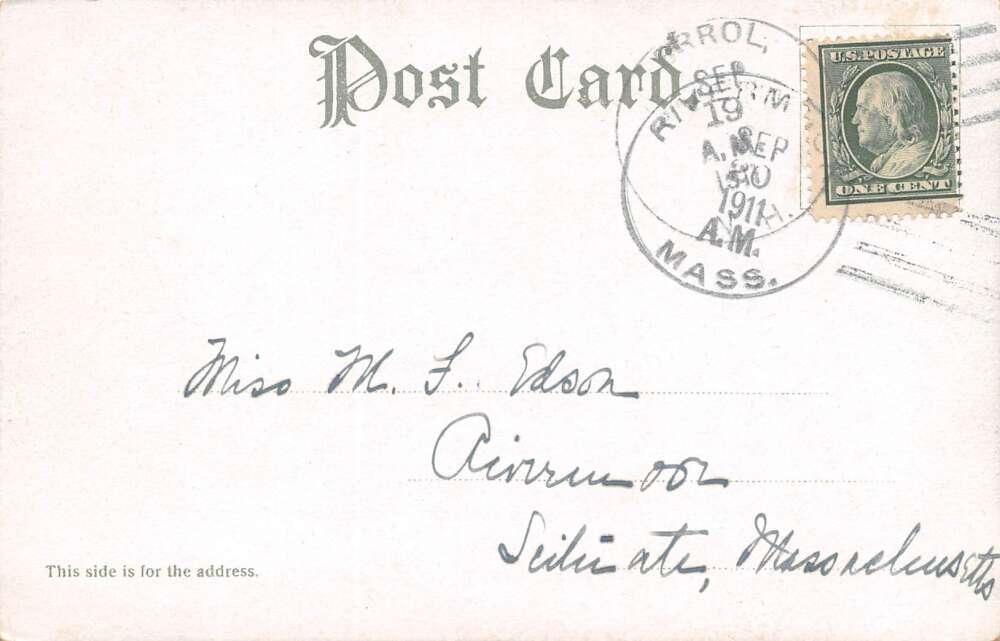 Post Card
U.S. POSTAGE
ONE CENT
ERROL,
SEP
19
A.M.
N.H.
SEP
20
1911
A.M.
MASS.
Miss M. F. Edson
Rivermoor
Scituate, Massachusetts
This side is for the address.